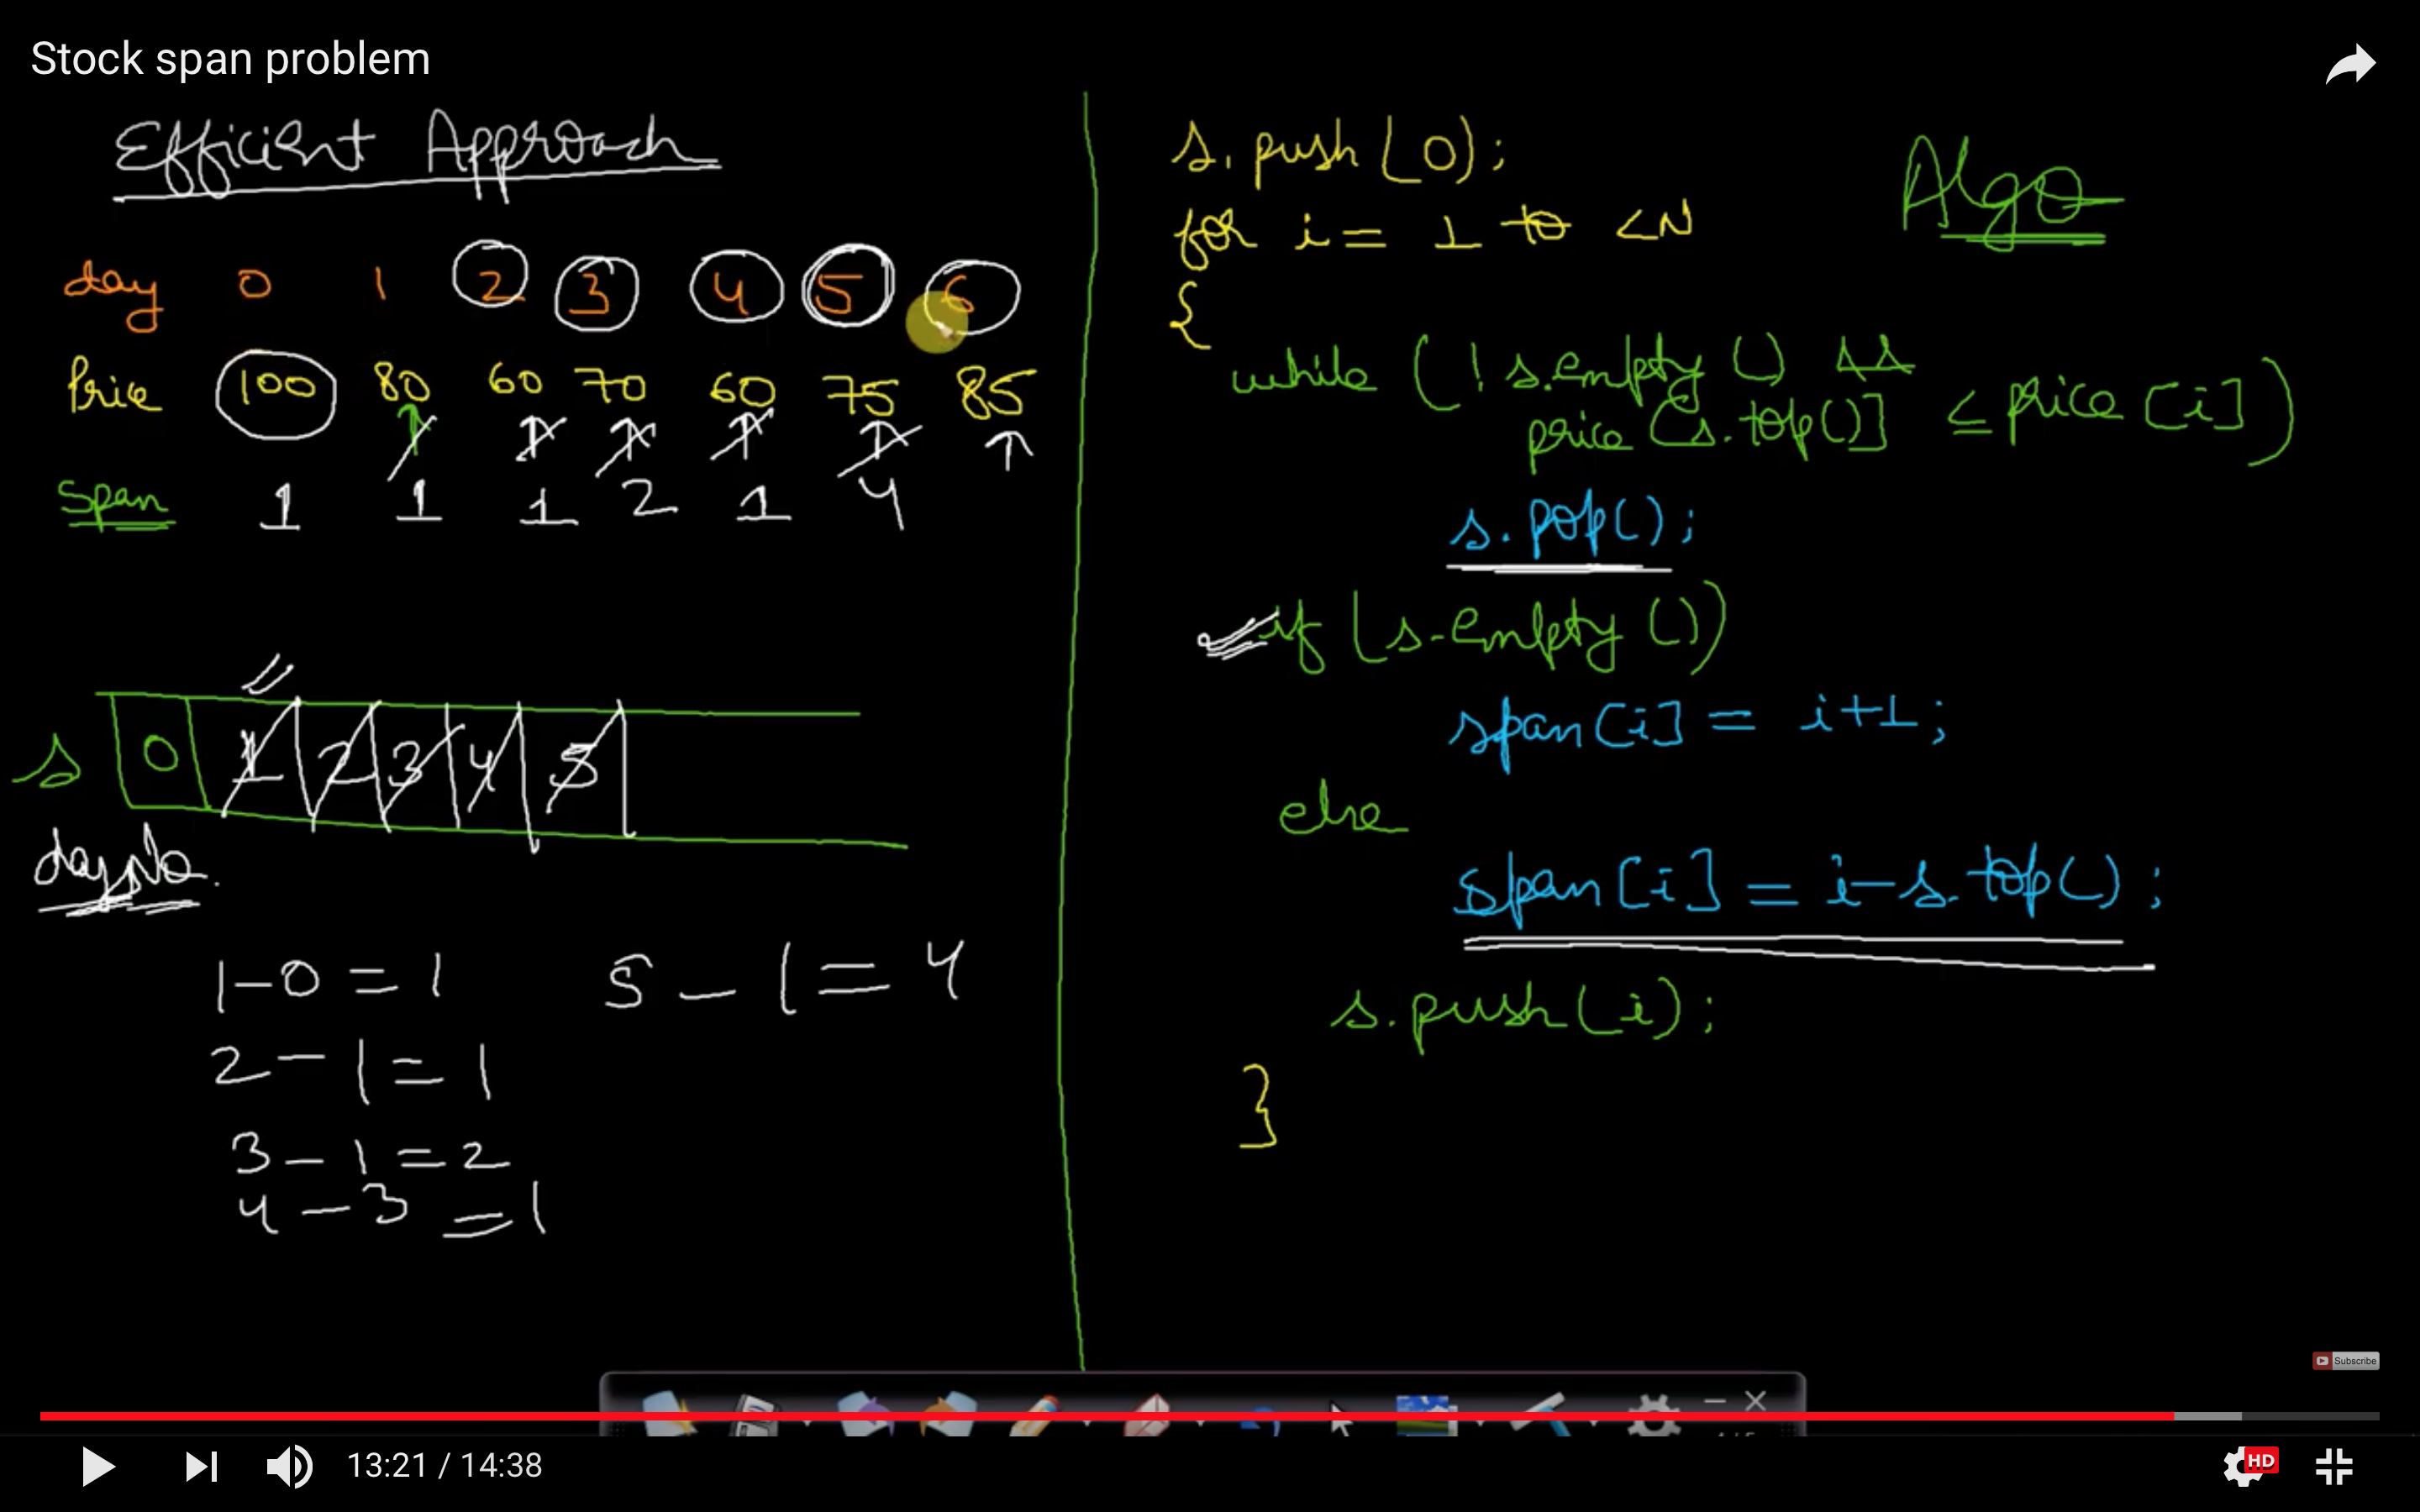 Stock span problem
Efficient Approach
day 0 1 2 3 4 5 6
Price 100 80 60 70 60 75 85
Span 1 1 1 2 1 4
s 0 1 2 3 4 5
day No.
1-0 = 1
2 - 1 = 1
3 - 1 = 2
4 - 3 = 1
5 - 1 = 4
Algo
s.push(0);
for i = 1 to <N
{
while (!s.empty() &&
price[s.top()] ≤ price[i])
s.pop();
if (s.empty())
span[i] = i+1;
else
span[i] = i-s.top();
s.push(i);
}
Subscribe
13:21 / 14:38
HD